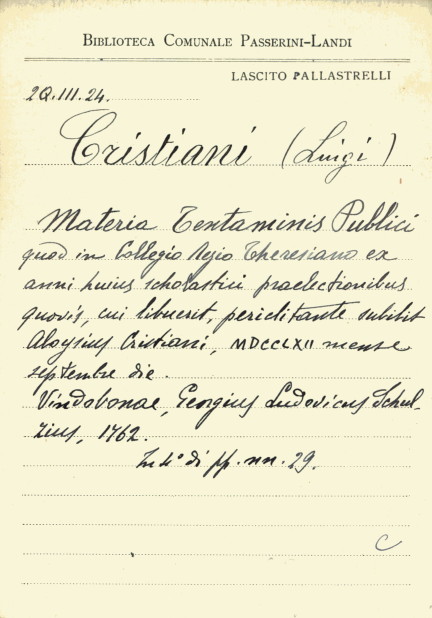 BIBLIOTECA COMUNALE PASSERINI-LANDI
LASCITO PALLASTRELLI
2Q.III.24.
Cristiani (Luigi)
Materia Tentaminis Publici
quod in Collegio Regio Theresiano ex
anni huius scholastici praelectionibus
quovis, cui libuerit, periclitante subibit
Aloysius Cristiani, MDCCLXII mense
septembre die.
Vindobonae, Georgius Ludovicus Schul-
zius, 1762.
In 4° di pp. nn. 29.
C